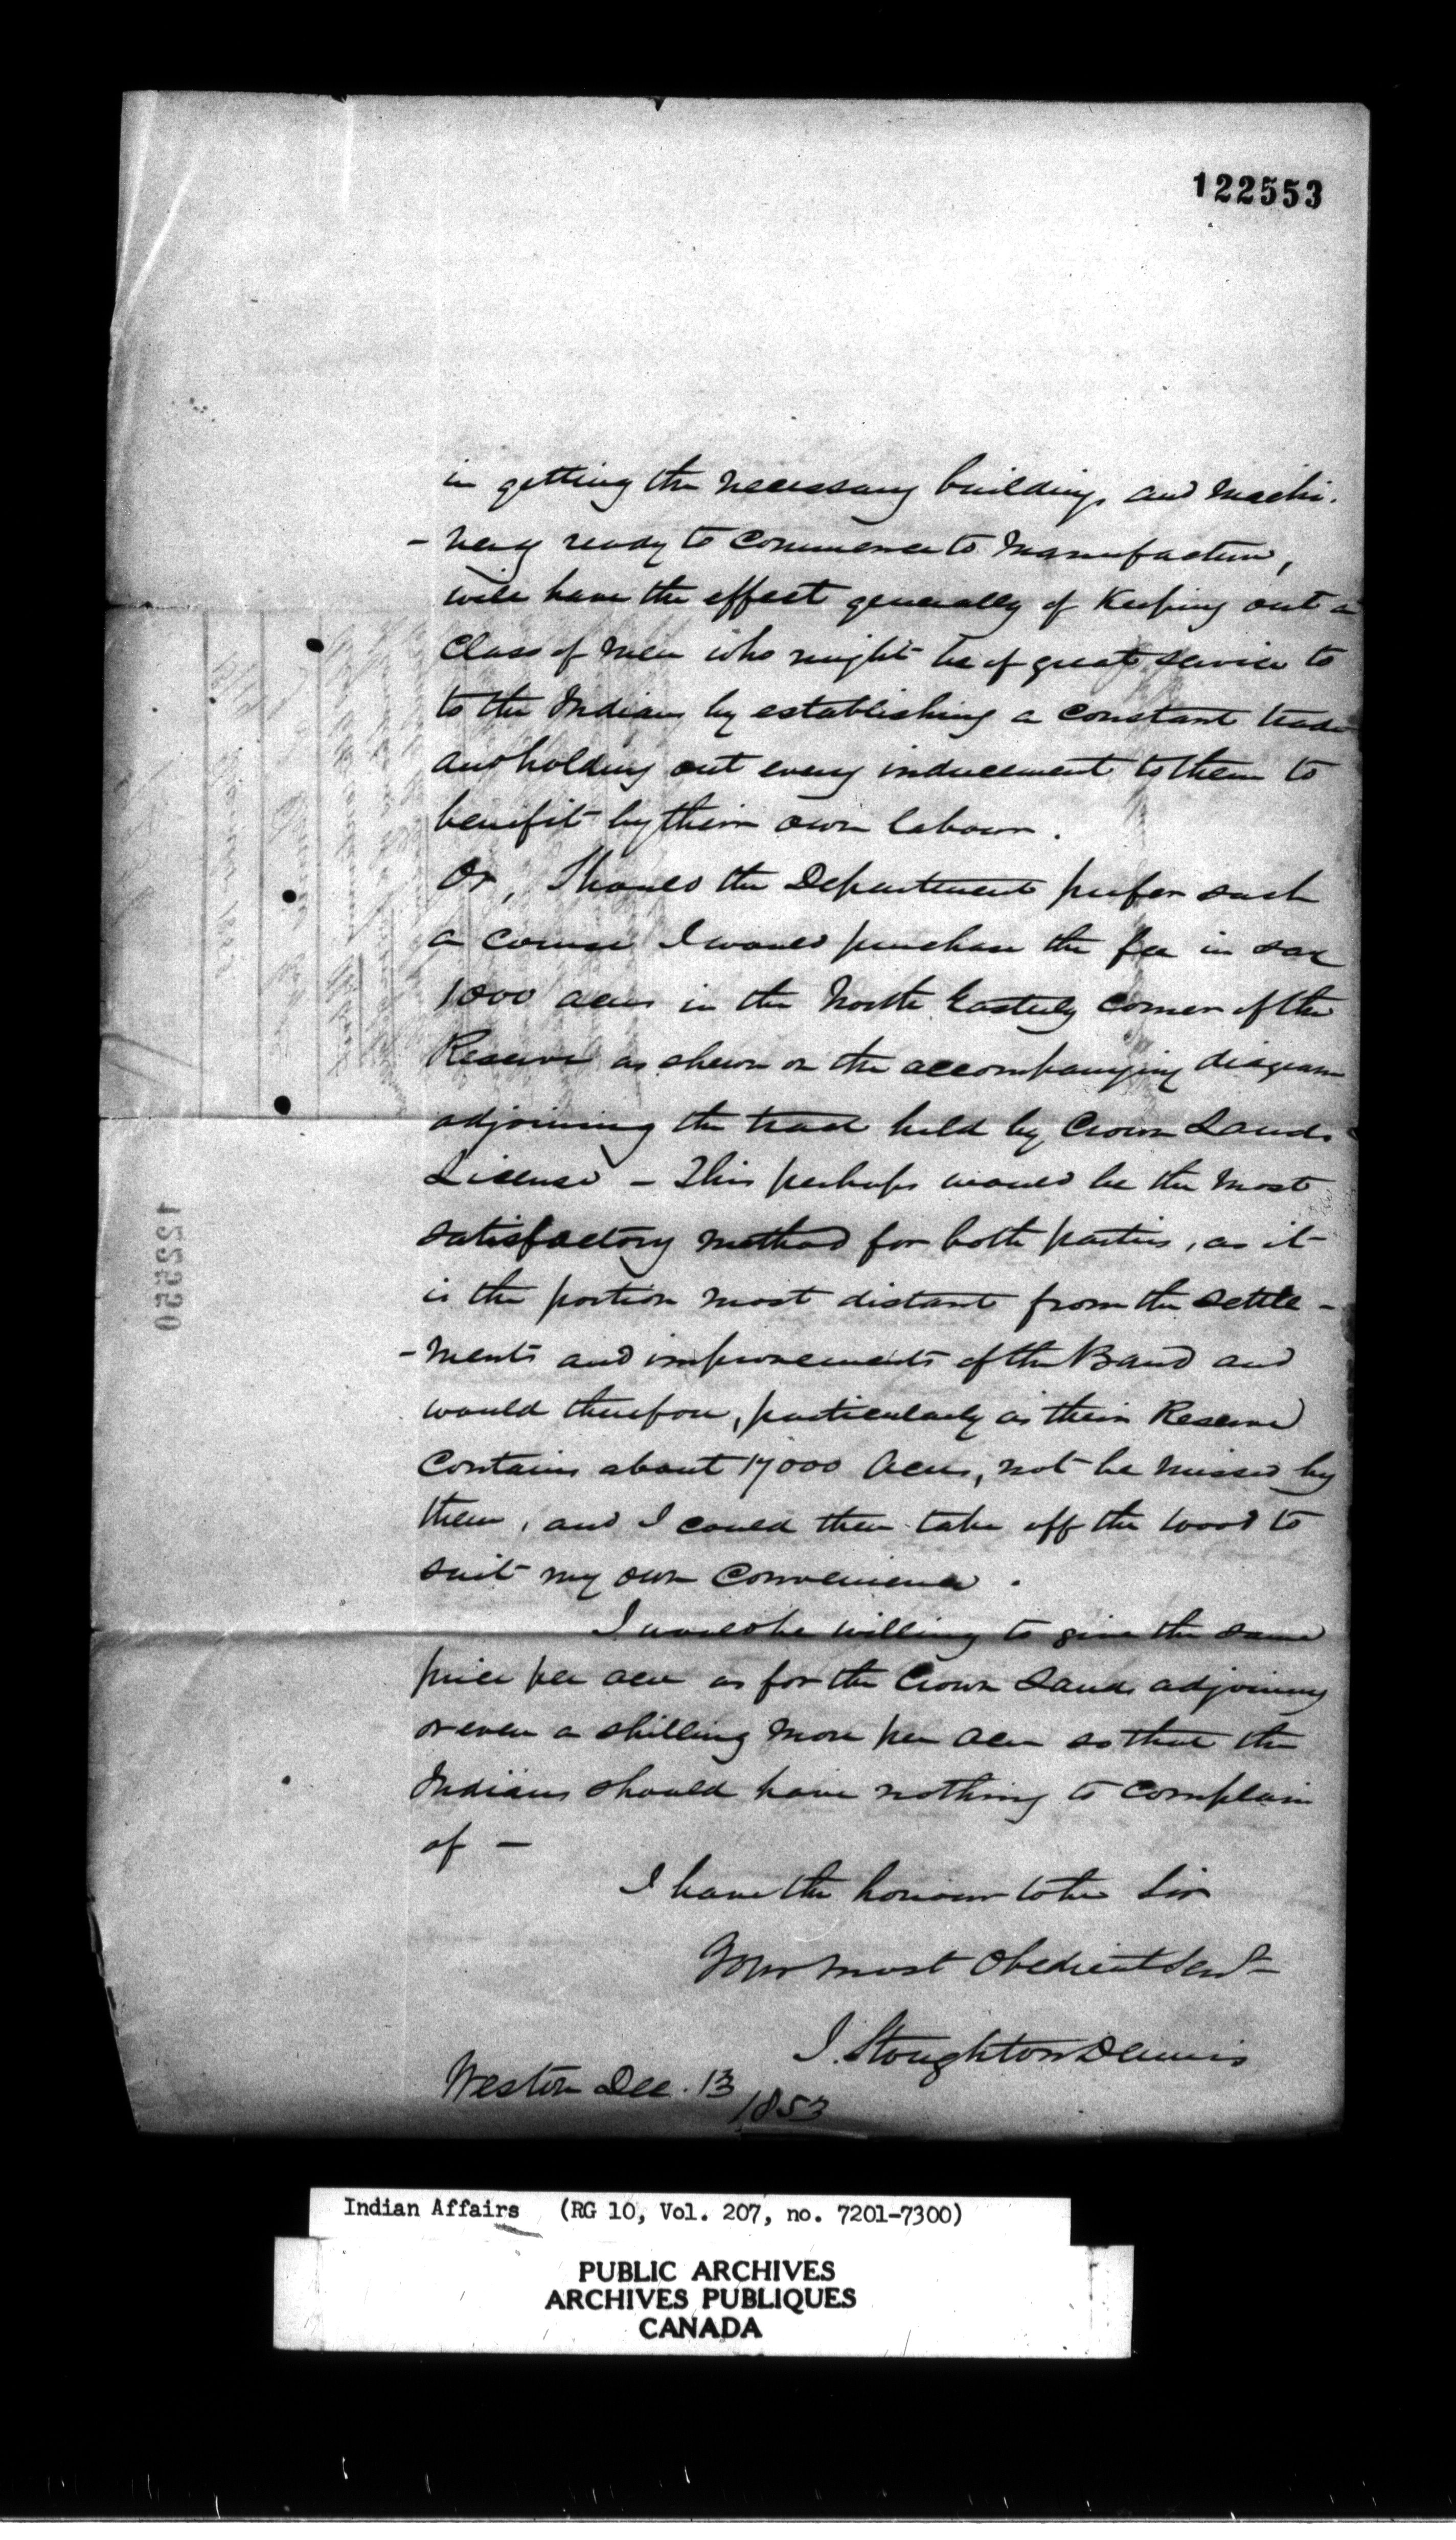 122553
in getting the necessary buildings and machi-
-nery ready to commence to manufacture,
will have the effect generally of keeping out a
class of men who might be of great service to
to the Indians by establishing a constant trade
and holding out every inducement to them to
benefit by their own labour.
Or, Should the Department prefer such
a course I would purchase the fee in say
1000 acres in the North Easterly corner of the
Reserve as shewn on the accompanying diagram
adjoining the tract held by Crown Lands
License – This perhaps would be the most
satisfactory method for both parties, as it
is the portion most distant from the settle-
-ments and improvements of the Band and
would therefore, particularly as their Reserve
contains about 17000 Acres, not be missed by
them, and I could then take off the wood to
suit my own convenience.
I would be willing to give the same
price per acre as for the Crown Lands adjoining
or even a shilling more per acre so that the
Indians should have nothing to complain
of –
I have the honour to be Sir
Your most Obedient Servt
J. Stoughton Dennis
Weston Dec. 13
1853
122550
Indian Affairs (RG 10, Vol. 207, no. 7201-7300)
PUBLIC ARCHIVES
ARCHIVES PUBLIQUES
CANADA